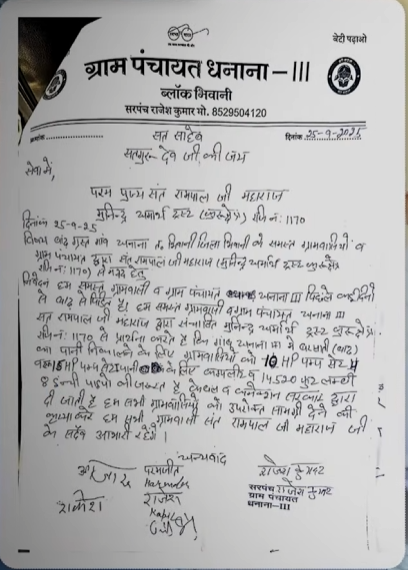 बेटी पढ़ाओ
ग्राम पंचायत धनाना - III
ब्लॉक भिवानी
सरपंच राजेश कुमार मो. 8529504120
दिनांक 25-9-2025
सत साहेब
सतगुरू देव जी की जय
सेवा में,
परम पुज्य संत रामपाल जी महाराज
मुनिन्द्र धमार्थ ट्रस्ट (कुरुक्षेत्र) रजि नं: 1170
दिनांक 25-9-25
विषय बाढ़ ग्रस्त गांव धनाना जिला भिवानी के समस्त ग्रामवासियों व
ग्राम पंचायत द्वारा संत रामपाल जी महाराज (मुनिन्द्र धमार्थ ट्रस्ट कुरुक्षेत्र
रजि नं: 1170) से मदद हेतु
निवेदन हम समस्त ग्रामवासी व ग्राम पंचायत धनाना III पिछले कई दिनों
से बाढ़ से हैं। हम समस्त ग्रामवासी व ग्राम पंचायत धनाना III
संत रामपाल जी महाराज द्वारा संचालित मुनिन्द्र धमार्थ ट्रस्ट कुरुक्षेत्र
रजि नं: 1170 से प्रार्थना करते है कि गांव धनाना III में बरसाती (बाढ़)
का पानी निकालने के लिए ग्रामवासियों को 10 HP पम्प सेट
HP के लिए व 14520 फुट लम्बी
8 इंची पाईपों की जरूरत है व कनेक्शन सरकार द्वारा
दी जाती है हम सभी ग्रामवासियों को उपरोक्त सामग्री देने की
कृप्या करे हम सभी ग्रामवासी संत रामपाल जी महाराज जी
के सदैव आभारी रहेगें।
धन्यवाद
परमजीत
राजेश कुमार
राकेश
राजेश
सरपंच राजेश कुमार
ग्राम पंचायत
धनाना-III